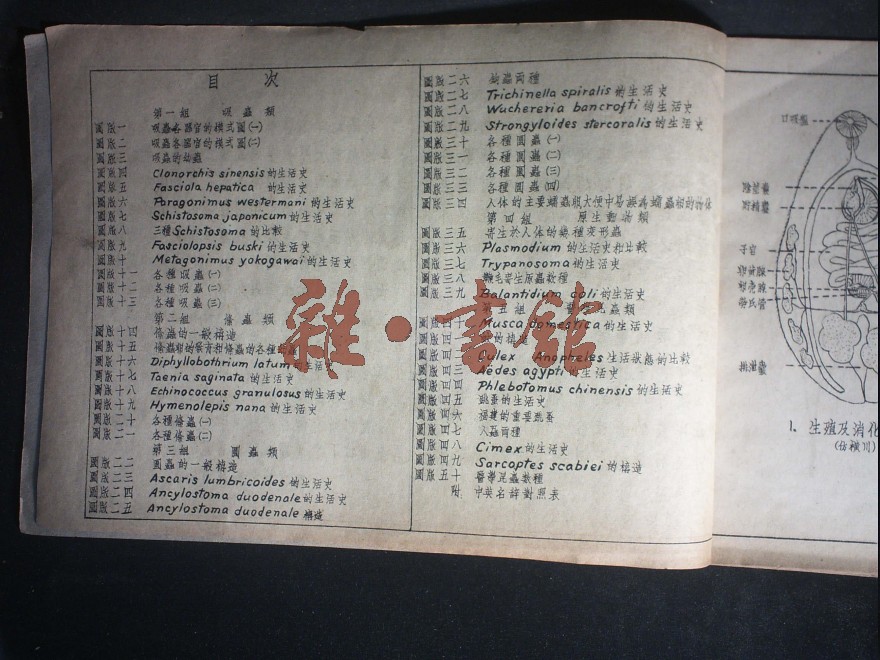 目 次
第一組 吸蟲類
圖版一 吸蟲各器官的模式圖(一)
圖版二 吸蟲各器官的模式圖(二)
圖版三 吸蟲的幼蟲
圖版四 Clonorchis sinensis的生活史
圖版五 Fasciola hepatica 的生活史
圖版六 Paragonimus westermani的生活史
圖版七 Schistosoma japonicum的生活史
圖版八 三種Schistosoma的比較
圖版九 Fasciolopsis buski的生活史
圖版十 Metagonimus yokogawai的生活史
圖版十一 各種吸蟲(一)
圖版十二 各種吸蟲(二)
圖版十三 各種吸蟲(三)
第二組 絛蟲類
圖版十四 絛蟲的一般構造
圖版十五 絛蟲卵的發育和絛蟲的各種幼蟲
圖版十六 Diphyllobothrium latum的生活史
圖版十七 Taenia saginata的生活史
圖版十八 Echinococcus granulosus的生活史
圖版十九 Hymenolepis nana的生活史
圖版二十 各種絛蟲(一)
圖版二一 各種絛蟲(二)
第三組 圓蟲類
圖版二二 圓蟲的一般構造
圖版二三 Ascaris lumbricoides的生活史
圖版二四 Ancylostoma duodenale的生活史
圖版二五 Ancylostoma duodenale構造
圖版二六 鈎蟲兩種
圖版二七 Trichinella spiralis的生活史
圖版二八 Wuchereria bancrofti的生活史
圖版二九 Strongyloides stercoralis的生活史
圖版三十 各種圓蟲(一)
圖版三一 各種圓蟲(二)
圖版三二 各種圓蟲(三)
圖版三三 各種圓蟲(四)
圖版三四 人体的主要蠕蟲卵大便中易誤為蠕蟲卵的物体
第四組 原生動物類
圖版三五 寄生於人体的幾種變形蟲
圖版三六 Plasmodium的生活史和比較
圖版三七 Trypanosoma的生活史
圖版三八 鞭毛寄生原蟲數種
圖版三九 Balantidium coli的生活史
第五組 昆蟲類
圖版四十 Musca domestica的生活史
圖版四一 的構造
圖版四二 Culex Anopheles生活狀態的比較
圖版四三 Aëdes agypti的生活史
圖版四四 Phlebotomus chinensis的生活史
圖版四五 跳蚤的生活史
圖版四六 福建的重要跳蚤
圖版四七 人蝨兩種
圖版四八 Cimex的生活史
圖版四九 Sarcoptes scabiei的構造
圖版五十 醫學昆蟲數種
附 中英名詞對照表
口吸盤
子宮
1. 生殖及消化
(仿橫川)
雜·書館